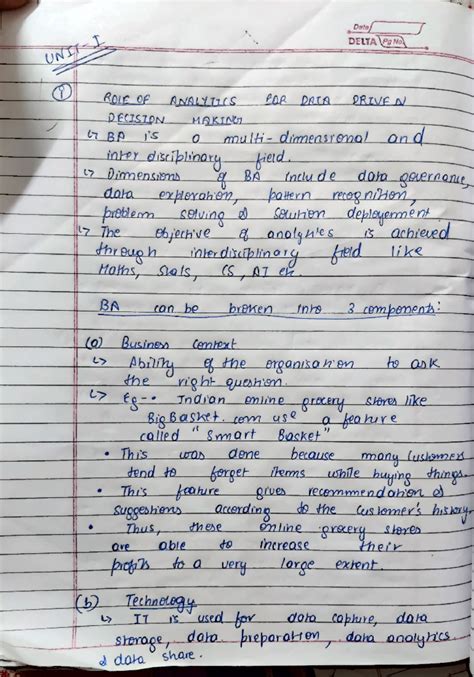 Date
DELTA Pg No.
UNIT-I
1 ROLE OF ANALYTICS FOR DATA DRIVEN
DECISION MAKING
↳ BA is a multi-dimensional and
interdisciplinary field.
↳ Dimensions of BA include data governance,
data exploration, pattern recognition,
problem solving & solution deployement.
↳ The objective of analytics is achieved
through interdisciplinary field like
Maths, Stats, CS, AI etc.
BA can be broken into 3 components:
(a) Business Context
↳ Ability of the organisation to ask
the right question.
↳ Eg-• Indian online grocery stores like
BigBasket.com use a feature
called "Smart Basket"
• This was done because many customers
tend to forget items while buying things.
• This feature gives recommendation &
suggestions according to the customer's history.
• Thus, these online grocery stores
are able to increase their
profits to a very large extent.
(b) Technology
↳ IT is used for data capture, data
storage, data preparation, data analytics
& data share.